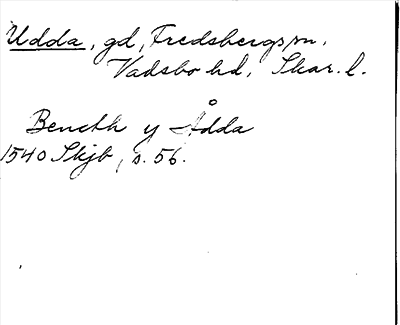 Udda, gd, Fredsbergs sn.
Vadsbo hd, Skar. l.
Benckh y Ådda
1540 Skjb, s. 56.